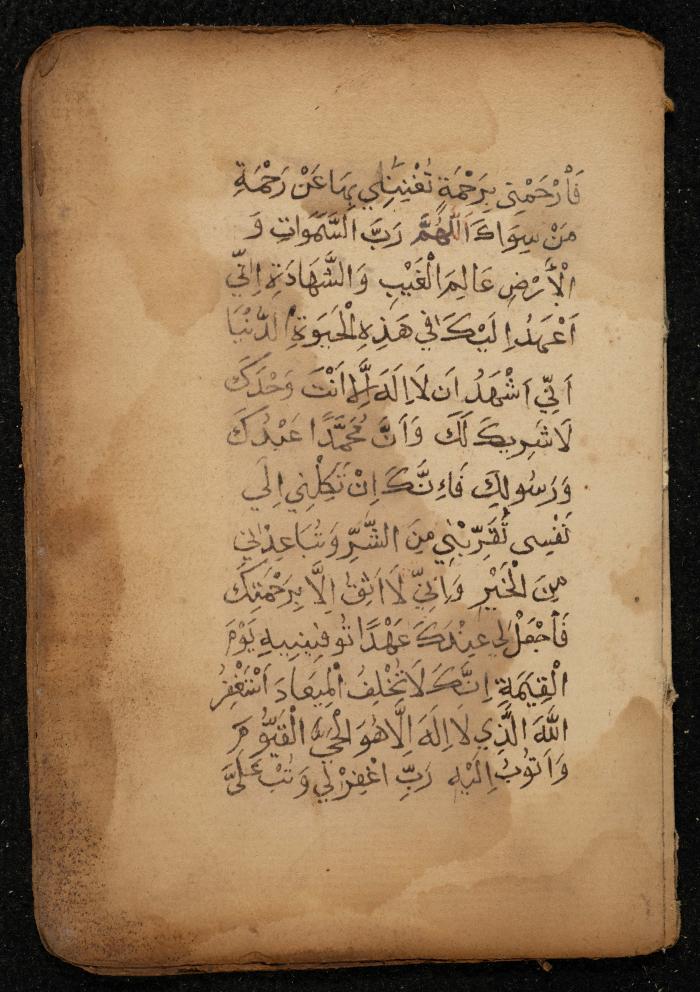 فَارْحَمْنِي بِرَحْمَةٍ تُغْنِينِي بِهَا عَنْ رَحْمَةِ
مَنْ سِوَاكَ اَللّٰهُمَّ رَبَّ السَّمَوَاتِ وَ
الْأَرْضِ عَالِمَ الْغَيْبِ وَالشَّهَادَةِ اِنِّي
اَعْهَدُ اِلَيْكَ فِي هَذِهِ الْحَيَوةِ الدُّنْيَا
اَنِّي اَشْهَدُ اَنْ لَا اِلَهَ اِلَّا اَنْتَ وَحْدَكَ
لَا شَرِيكَ لَكَ وَاَنَّ مُحَمَّدًا عَبْدُكَ
وَرَسُولِكَ فَاِنَّكَ اِنْ تَكِلْنِي اِلَي
نَفْسِى تُقَرِّبْنِي مِنَ الشَّرِّ وَتُبَاعِدْنِي
مِنَ الْخَيْرِ وَاِنِّي لَا اَثِقُ اِلَّا بِرَحْمَتِكَ
فَاجْعَلْ لِي عِنْدَكَ عَهْدًا تُوفِينِيهِ يَوْمَ
الْقِيَمَةِ اِنَّكَ لَا تُخْلِفُ الْمِيعَادَ اَسْتَغْفِرُ
اللّٰهَ الَّذِي لَا اِلَهَ اِلَّا هُوَ الْحَيُّ الْقَيُّومَ
وَاَتُوبُ اِلَيْهِ رَبِّ اغْفِرْ لِي وَتُبْ عَلَيَّ